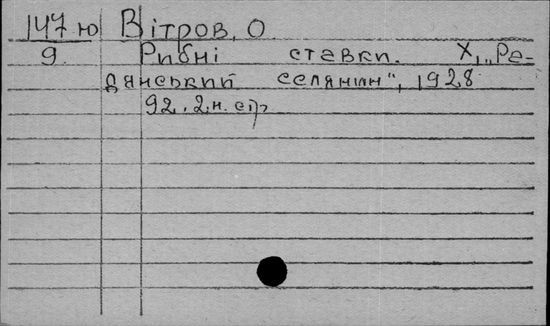 147 ю Вітров, О
9. Рибні ставки. Х, „Ре-
дянський селянин", 1928
92, 2 н. стр